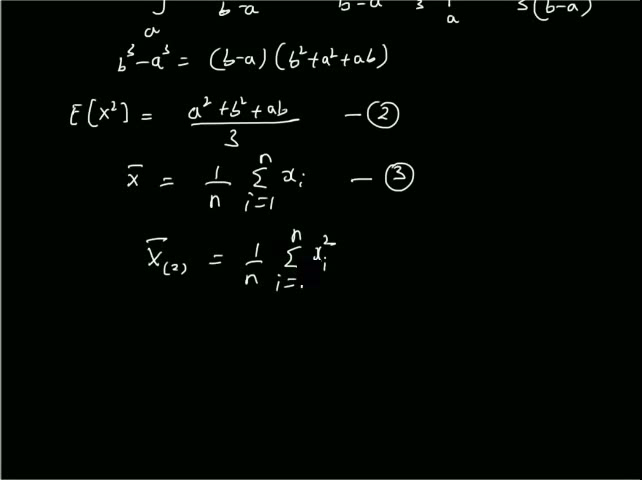 a b-a b-a 3 a 3(b-a)
b³-a³ = (b-a) (b²+a²+ab)
E[X²] = a²+b²+ab / 3 — ②
x̄ = 1/n Σ i=1 n xᵢ — ③
X̄₍₂₎ = 1/n Σ i=. n xᵢ²